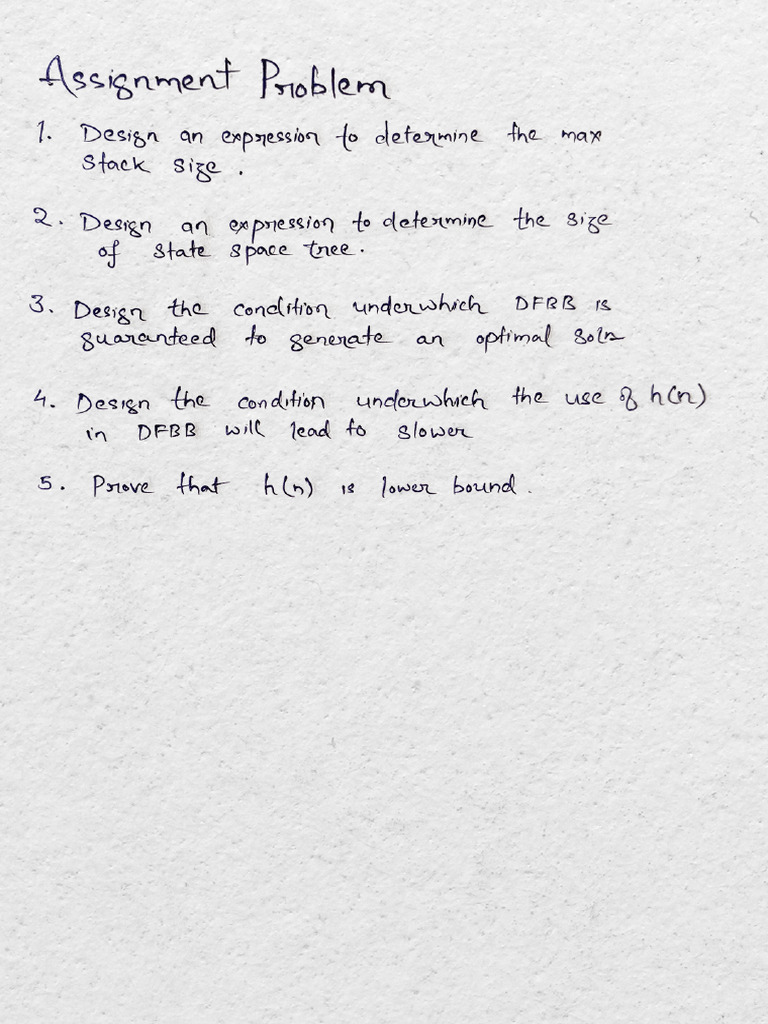 Assignment Problem
1. Design an expression to determine the max
stack size.
2. Design an expression to determine the size
of state space tree.
3. Design the condition underwhich DFBB is
guaranteed to generate an optimal soln
4. Design the condition underwhich the use of h(n)
in DFBB will lead to slower
5. Prove that h(n) is lower bound.